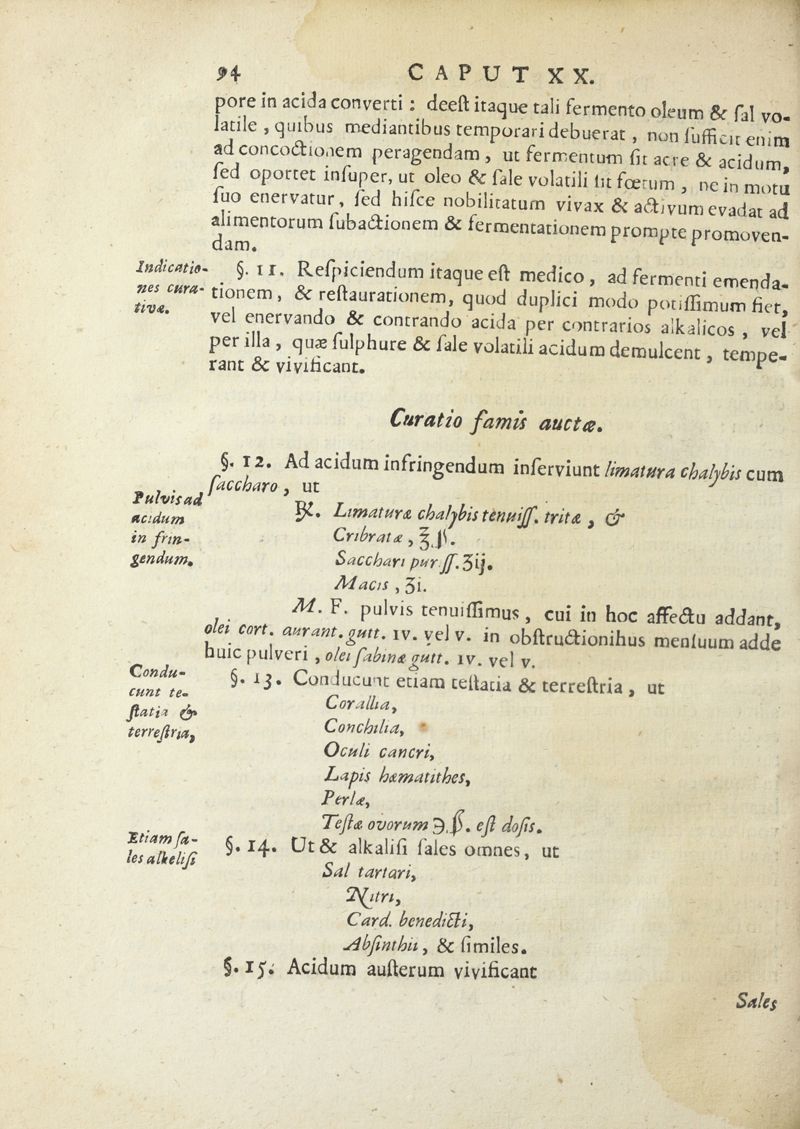 94 CAPUT XX.
pore in acida converti : deeſt itaque tali fermento oleum & ſal vo-
latile , quibus mediantibus temporari debuerat , non ſufficit enim
ad concoctionem peragendam , ut fermentum ſit acre & acidum,
ſed oportet inſuper, ut oleo & ſale volatili ſit fœtum , ne in motu
ſuo enervatur , ſed hiſce nobilitatum vivax & activum evadat ad
alimentorum ſubactionem & fermentationem prompte promoven-
dam.
Indicatio-
nes cura-
tivæ.
§. 11. Reſpiciendum itaque eſt medico , ad fermenti emenda-
tionem , & reſtaurationem, quod duplici modo potiſſimum fiet,
vel enervando & contrando acida per contrarios alkalicos , vel
per illa , quæ ſulphure & ſale volatili acidum demulcent , tempe-
rant & vivificant.
Curatio famis auctæ.
§. 12. Ad acidum infringendum inſerviunt limatura chalybis cum
ſaccharo , ut
Pulvis ad
acidum
in frin-
gendum.
℞. Limaturæ chalybis tenuiſſ. tritæ , &
Cribratæ , ℥.β.
Sacchari pur.ſſ. ʒij.
Macis , ʒi.
M. F. pulvis tenuiſſimus , cui in hoc affectu addant,
olei cort. aurant. gutt. iv. vel v. in obſtructionihus menſuum adde
huic pulveri , olei ſabinæ gutt. iv. vel v.
Condu-
cunt te-
ſtatia &
terreſtria,
§. 13. Conducunt etiam teſtatia & terreſtria , ut
Corallia,
Conchilia,
Oculi cancri,
Lapis hæmatithes,
Perlæ,
Teſtæ ovorum ℈.β. eſt doſis.
Etiam ſa-
les alkeliſi
§. 14. Ut & alkaliſi ſales omnes, ut
Sal tartari,
Nitri,
Card. benedicti,
Abſinthii , & ſimiles.
§. 15. Acidum auſterum vivificant
Sales